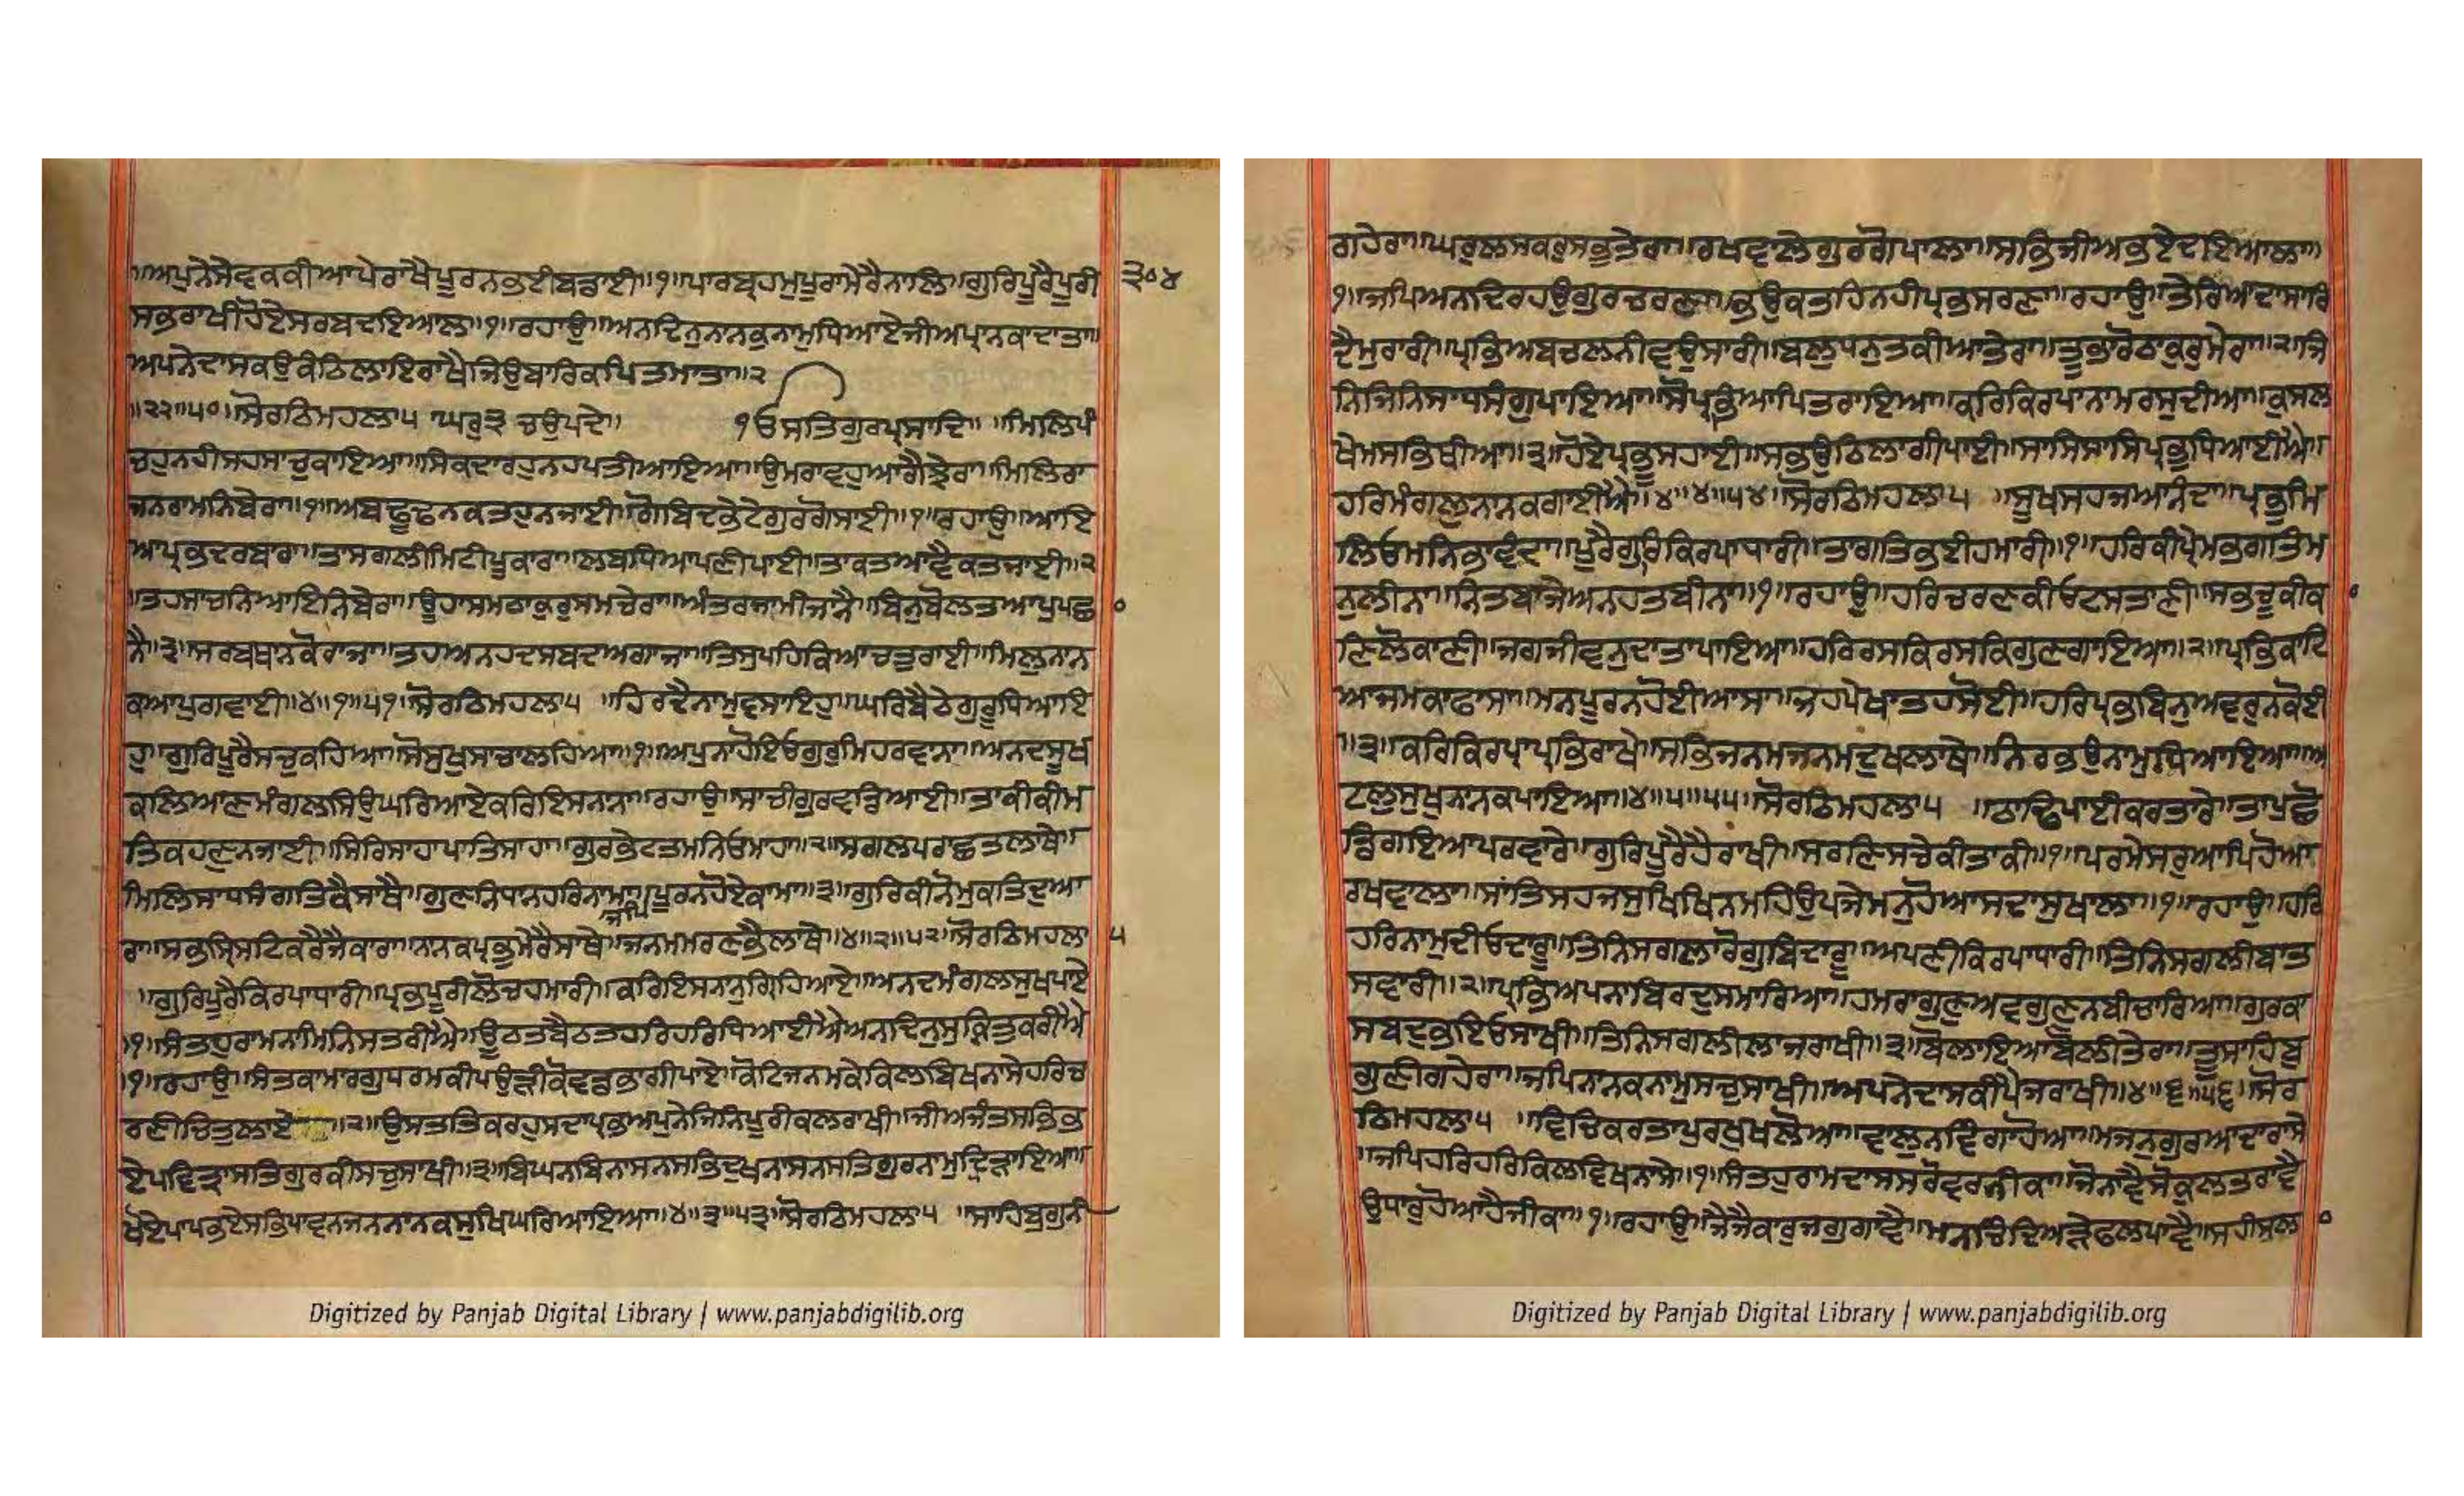 ॥ਅਪੁਨੇਸੇਵਕਕੀਆਪੇਰਾਖੈਪੂਰਨਭਈਬਡਾਈ॥੧॥ਪਾਰਬ੍ਰਹਮੁਪੂਰਾਮੇਰੈਨਾਲਿ॥ਗੁਰਿਪੂਰੈਪੂਰੀ
੩੦੪
ਸਭਰਾਖੀਹੋਏਸਰਬਦਇਆਲ॥੧॥ਰਹਾਉ॥ਅਨਦਿਨੁਨਾਨਕੁਨਾਮੁਧਿਆਏਜੀਅਪ੍ਰਾਨਕਾਦਾਤਾ॥
ਅਪਨੇਦਾਸਕਉਕੰਠਿਲਾਇਰਾਖੈਜਿਉਬਾਰਿਕਪਿਤਮਾਤਾ॥੨
॥੨੨॥੫੦॥ਸੋਰਠਿਮਹਲਾ੫ ਘਰੁ੩ ਚਉਪਦੇ॥ ੴਸਤਿਗੁਰਪ੍ਰਸਾਦਿ॥ ॥ਮਿਲਿਪੰ
ਚਹੁਨਹੀਸਹਸਾਚੁਕਾਇਆ॥ਸਿਕਦਾਰਹੁਨਹਪਤੀਆਇਆ॥ਉਮਰਾਵਹੁਆਗੈਝੇਰਾ॥ਮਿਲਿਰਾ
ਜਨਰਾਮਨਿਬੇਰਾ॥੧॥ਅਬਢੂਢਨਕਤਹੁਨਜਾਈ॥ਗੋਬਿਦਭੇਟੇਗੁਰਗੋਸਾਈ॥੧॥ਰਹਾਉ॥ਆਇ
ਆਪ੍ਰਭਦਰਬਾਰਾ॥ਤਾਸਗਲੀਮਿਟੀਪੂਕਾਰਾ॥ਲਬਧਿਆਪਣੀਪਾਈ॥ਤਾਕਤਆਵੈਕਤਜਾਈ॥੨
॥ਤਹਸਾਚਨਿਆਇਨਿਬੇਰਾ॥ਊਹਾਸਮਠਾਕੁਰੁਸਮਚੇਰਾ॥ਅੰਤਰਜਾਮੀਜਾਨੈ॥ਬਿਨੁਬੋਲਤਆਪੁਪਛਾ
ਨੈ॥੩॥ਸਰਬਥਾਨਕੋਰਾਜਾ॥ਤਹਅਨਹਦਸਬਦਅਗਾਜਾ॥ਤਿਸੁਪਹਿਕਿਆਚਤੁਰਾਈ॥ਮਿਲੁਨਾਨ
ਕਆਪੁਗਵਾਈ॥੪॥੧॥੫੧॥ਸੋਰਠਿਮਹਲਾ੫ ॥ਹਿਰਦੈਨਾਮੁਵਸਾਇਹੁ॥ਘਰਿਬੈਠੇਗੁਰੂਧਿਆਇ
ਹੁ॥ਗੁਰਿਪੂਰੈਸਚੁਕਹਿਆ॥ਸੋਸੁਖੁਸਾਚਾਲਹਿਆ॥੧॥ਅਪੁਨਾਹੋਇਓਗੁਰੁਮਿਹਰਵਾਨਾ॥ਅਨਦਸੂਖ
ਕਲਿਆਣਮੰਗਲਸਿਉਘਰਿਆਏਕਰਿਇਸਨਾਨਾ॥ਰਹਾਉ॥ਸਾਚੀਗੁਰਵਡਿਆਈ॥ਤਾਕੀਕੀਮ
ਤਿਕਹਣਨਜਾਈ॥ਸਿਰਿਸਾਹਾਪਾਤਿਸਾਹਾ॥ਗੁਰਭੇਟਤਮਨਿਓਮਾਹਾ॥੨॥ਸਗਲਪਰਾਛਤਲਾਥੇ॥
ਮਿਲਿਸਾਧਸੰਗਤਿਕੈਸਾਥੈ॥ਗੁਣਨਿਧਾਨਹਰਿਨਾਮਾ॥ਜਪਿਪੂਰਨਹੋਏਕਾਮਾ॥੩॥ਗੁਰਿਕੀਨੋਮੁਕਤਿਦੁਆ
ਰਾ॥ਸਭਸ੍ਰਿਸਟਿਕਰੈਜੈਕਾਰਾ॥ਨਾਨਕਪ੍ਰਭੁਮੇਰੈਸਾਥੇ॥ਜਨਮਮਰਣਭੈਲਾਥੇ॥੪॥੨॥੫੨॥ਸੋਰਠਿਮਹਲਾ ੫
॥ਗੁਰਿਪੂਰੈਕਿਰਪਾਧਾਰੀ॥ਪ੍ਰਭਪੂਰੀਲੋਚਹਮਾਰੀ॥ਕਰਿਇਸਨਾਨੁਗ੍ਰਿਹਿਆਏ॥ਅਨਦਮੰਗਲਸੁਖਪਾਏ
॥੧॥ਸੰਤਹੁਰਾਮਨਾਮਿਨਿਸਤਰੀਐ॥ਊਠਤਬੈਠਤਹਰਿਹਰਿਧਿਆਈਐਅਨਦਿਨੁਸੁਕ੍ਰਿਤੁਕਰੀਐ
॥੧॥ਰਹਾਉ॥ਸੰਤਕਾਮਾਰਗੁਧਰਮਕੀਪਉੜੀਕੋਵਡਭਾਗੀਪਾਏ॥ਕੋਟਿਜਨਮਕੇਕਿਲਬਿਖਨਾਸੇਹਰਿਚ
ਰਣੀਚਿਤੁਲਾਏ॥੨॥ਉਸਤਤਿਕਰਹੁਸਦਾਪ੍ਰਭਅਪੁਨੇਜਿਨਿਪੂਰੀਕਲਰਾਖੀ॥ਜੀਅਜੰਤਸਭਿਭ
ਏਪਵਿਤ੍ਰਾਸਤਿਗੁਰਕੀਸਚੁਸਾਖੀ॥੩॥ਬਿਘਨਬਿਨਾਸਨਸਭਿਦੁਖਨਾਸਨਸਤਿਗੁਰਨਾਮੁਦ੍ਰਿੜਾਇਆ॥
ਖੋਏਪਾਪਭਏਸਭਿਪਾਵਨਜਨਨਾਨਕਸੁਖਿਘਰਿਆਇਆ॥੪॥੩॥੫੩॥ਸੋਰਠਿਮਹਲਾ੫ ॥ਸਾਹਿਬੁਗੁਨੀ
Digitized by Panjab Digital Library | www.panjabdigilib.org
ਗਹੇਰਾ॥ਘਰੁਲਸਕਰੁਸਭੁਤੇਰਾ॥ਰਖਵਾਲੇਗੁਰਗੋਪਾਲਾ॥ਸਭਿਜੀਅਭਏਦਇਆਲਾ॥
੧॥ਜਪਿਅਨਦਿਰਹਉਗੁਰਚਰਣਾ॥ਭਉਕਤਹਿਨਹੀਪ੍ਰਭਸਰਣਾ॥ਰਹਾਉ॥ਤੇਰਿਆਦਾਸਾਰਿ
ਦੈਮੁਰਾਰੀ॥ਪ੍ਰਭਿਅਬਚਲਨੀਵਉਸਾਰੀ॥ਬਲੁਧਨੁਤਕੀਆਤੇਰਾ॥ਤੂਭਾਰੋਠਾਕੁਰੁਮੇਰਾ॥੨॥ਜਿ
ਨਿਜਿਨਿਸਾਧਸੰਗੁਪਾਇਆ॥ਸੋਪ੍ਰਭਿਆਪਿਤਰਾਇਆ॥ਕਰਿਕਿਰਪਾਨਾਮਰਸੁਦੀਆ॥ਕੁਸਲ
ਖੇਮਸਭਿਥੀਆ॥੩॥ਹੋਏਪ੍ਰਭੂਸਹਾਈ॥ਸਭਉਠਿਲਾਗੀਪਾਈ॥ਸਾਸਿਸਾਸਿਪ੍ਰਭੁਧਿਆਈਐ॥
ਹਰਿਮੰਗਲੁਨਾਨਕਗਾਈਐ॥੪॥੪॥੫੪॥ਸੋਰਠਿਮਹਲਾ੫ ॥ਸੂਖਸਹਜਆਨੰਦਾ॥ਪ੍ਰਭੁਮਿ
ਲਿਓਮਨਿਭਾਵੰਦਾ॥ਪੂਰੈਗੁਰਿਕਿਰਪਾਧਾਰੀ॥ਤਾਗਤਿਭਈਹਮਾਰੀ॥੧॥ਹਰਿਕੀਪ੍ਰੇਮਭਗਤਿਮ
ਨੁਲੀਨਾ॥ਨਿਤਬਾਜੇਅਨਹਤਬੀਨਾ॥੧॥ਰਹਾਉ॥ਹਰਿਚਰਣਕੀਓਟਸਤਾਣੀ॥ਸਭਚੂਕੀਕ
ਾਣਿਲੋਕਾਣੀ॥ਜਗਜੀਵਨੁਦਾਤਾਪਾਇਆ॥ਹਰਿਰਸਕਿਰਸਕਿਗੁਣਗਾਇਆ॥੨॥ਪ੍ਰਭਿਕਾਟਿ
ਆਜਮਕਾਫਾਸਾ॥ਮਨਪੂਰਨਹੋਈਆਸਾ॥ਜਹਪੇਖਾਤਹਸੋਈ॥ਹਰਿਪ੍ਰਭਬਿਨੁਅਵਰੁਨਕੋਈ
॥੩॥ਕਰਿਕਿਰਪਾਪ੍ਰਭਿਰਾਖੇ॥ਸਭਿਜਨਮਜਨਮਦੁਖਲਾਥੇ॥ਨਿਰਭਉਨਾਮੁਧਿਆਇਆ॥ਅ
ਟਲੁਸੁਖੁਨਾਨਕਪਾਇਆ॥੪॥੫॥੫੫॥ਸੋਰਠਿਮਹਲਾ੫ ॥ਠਾਢਿਪਾਈਕਰਤਾਰੇ॥ਤਾਪੁਛੋ
ਡਿਗਇਆਪਰਵਾਰੇ॥ਗੁਰਿਪੂਰੈਹੈਰਾਖੀ॥ਸਰਣਿਸਚੇਕੀਤਾਕੀ॥੧॥ਪਰਮੇਸਰੁਆਪਿਹੋਆ
ਰਖਵਾਲਾ॥ਸਾਂਤਿਸਹਜਸੁਖਿਖਿਨਮਹਿਉਪਜੇਮਨੁਹੋਆਸਦਾਸੁਖਾਲਾ॥੧॥ਰਹਾਉ॥ਹਰਿ
ਹਰਿਨਾਮੁਦੀਓਦਾਰੂ॥ਤਿਨਿਸਗਲਾਰੋਗੁਬਿਦਾਰੂ॥ਅਪਣੀਕਿਰਪਾਧਾਰੀ॥ਤਿਨਿਸਗਲੀਬਾਤ
ਸਵਾਰੀ॥੨॥ਪ੍ਰਭਿਅਪਨਾਬਿਰਦੁਸਮਾਰਿਆ॥ਹਮਰਾਗੁਣੁਅਵਗੁਣੁਨਬੀਚਾਰਿਆ॥ਗੁਰਕਾ
ਸਬਦੁਭਇਓਸਾਖੀ॥ਤਿਨਿਸਗਲੀਲਾਜਰਾਖੀ॥੩॥ਬੋਲਾਇਆਬੋਲੀਤੇਰਾ॥ਤੂਸਾਹਿਬੁ
ਗੁਣੀਗਹੇਰਾ॥ਜਪਿਨਾਨਕਨਾਮੁਸਚੁਸਾਖੀ॥ਅਪਨੇਦਾਸਕੀਪੈਜਰਾਖੀ॥੪॥੬॥੫੬॥ਸੋਰ
ਠਿਮਹਲਾ੫ ॥ਵਿਚਿਕਰਤਾਪੁਰਖੁਖਲੋਆ॥ਵਾਲੁਨਵਿੰਗਾਹੋਆ॥ਮਜਨੁਗੁਰਆਂਦਾਰਾਸੇ
॥ਜਪਿਹਰਿਹਰਿਕਿਲਵਿਖਨਾਸੇ॥੧॥ਸੰਤਹੁਰਾਮਦਾਸਸਰੋਵਰੁਨੀਕਾ॥ਜੋਨਾਵੈਸੋਕੁਲਤਰਾਵੈ
ਉਧਾਰੁਹੋਆਹੈਜੀਕਾ॥੧॥ਰਹਾਉ॥ਜੈਜੈਕਾਰੁਜਗੁਗਾਵੈ॥ਮਨਚਿੰਦਿਅੜੇਫਲਪਾਵੈ॥ਸਹੀਸਲਾ
Digitized by Panjab Digital Library | www.panjabdigilib.org